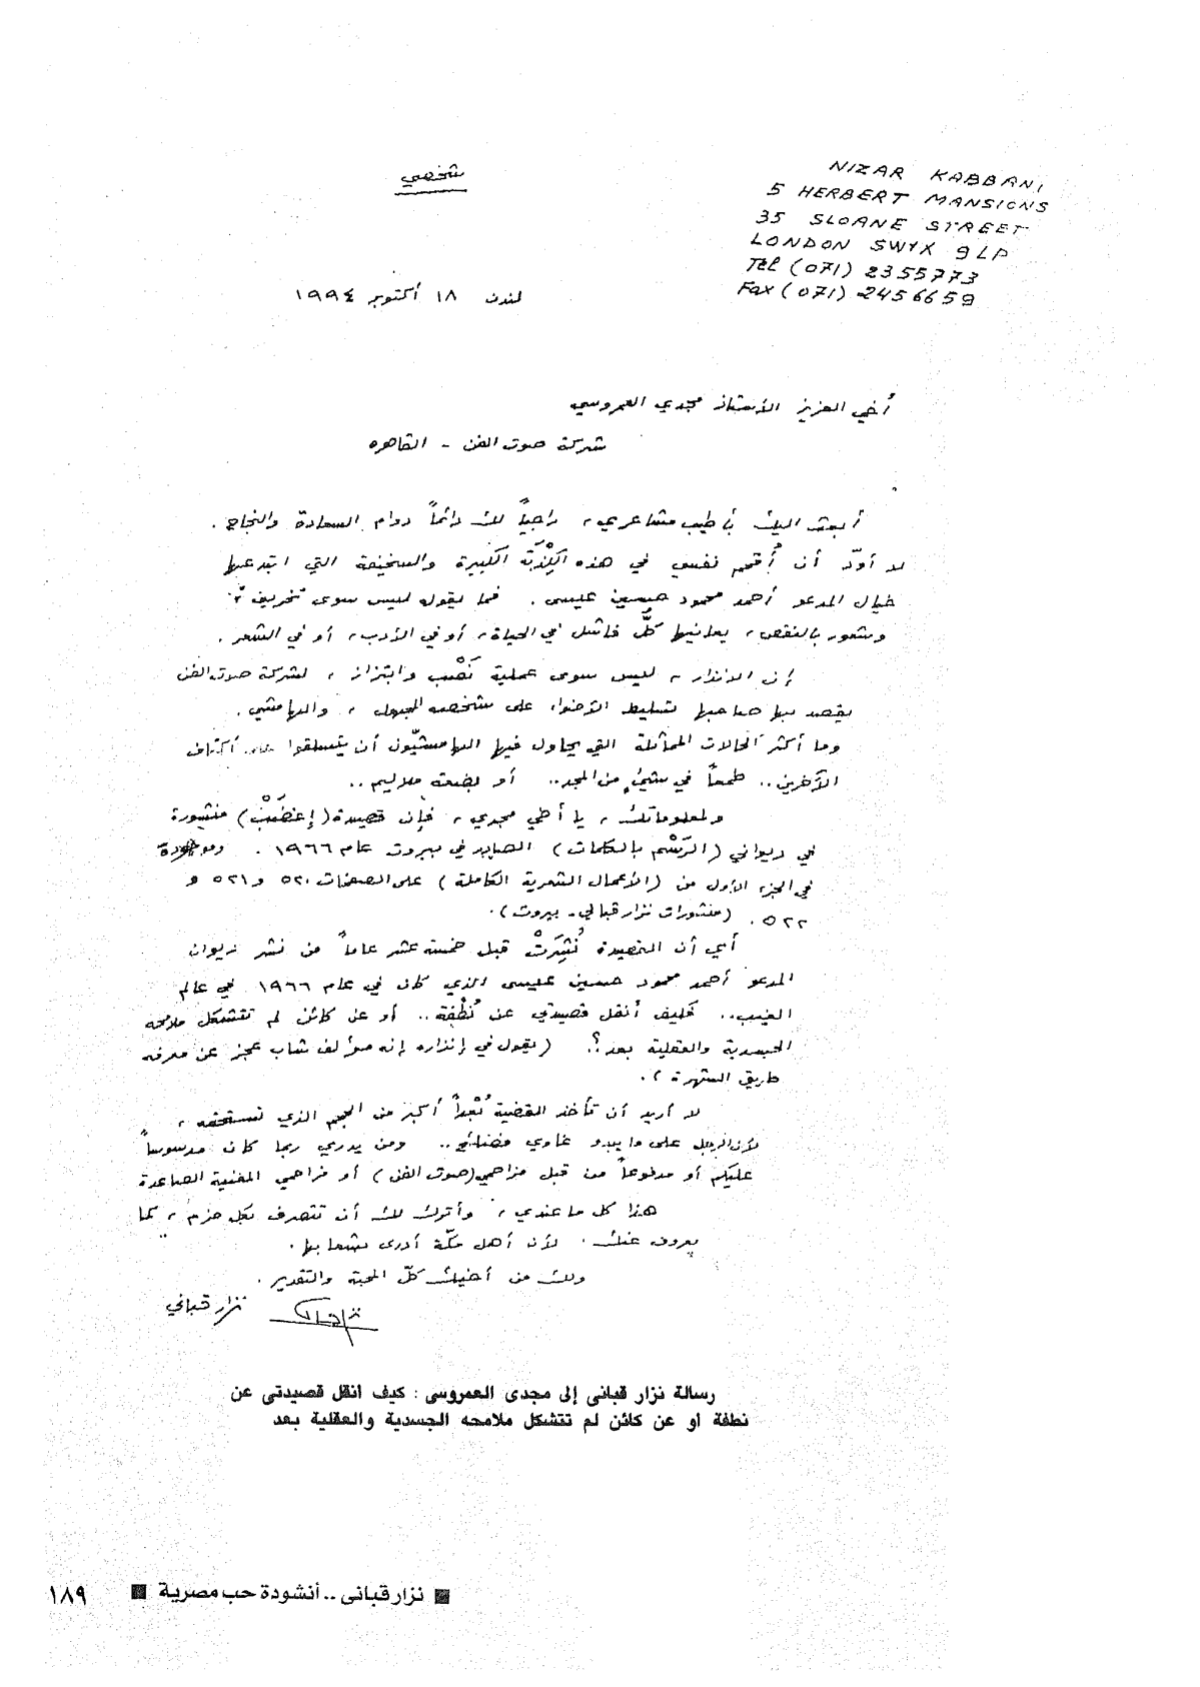 NIZAR KABBANI
5 HERBERT MANSIONS
35 SLOANE STREET
LONDON SW1X 9LP
Tel (071) 2355773
Fax (071) 2456659
شخصي
لندن ١٨ أكتوبر ١٩٩٤
أخي العزيز الأستاذ مجدي العمروسي
شركة صوت الفن - القاهره
أبعث اليك بأطيب مشاعري، راجياً لك دائماً دوام السعادة والنجاح.
لا أودّ أن أُقحم نفسي في هذه الكِذْبَة الكبيرة والسخيفة التي ابتدعها
خيال المدعو أحمد محمود حسين عيسى. فما يقوله ليس سوى تخريف
وشعور بالنقص، يعانيها كلّ فاشل في الحياة، أو في الأدب، أو في الشعر.
إن الانذار، ليس سوى عملية نَصْب وابتزاز، لشركة صوت الفن
يقصد بها صاحبها تسليط الأضواء على شخصه المجهول، والهامشي.
وما أكثر الحالات المماثلة التي يحاول فيها الهامشيّون أن يتسلقوا على أكتاف
الآخرين.. طمعاً في شيءٍ من المجد.. أو بضعة ملاليم..
ولمعلوماتك، يا أخي مجدي، فإن قصيدة (إغضَبْ) منشورة
في ديواني (الرَسْم بالكلمات) الصادر في بيروت عام ١٩٦٦. وموجودة
في الجزء الأول من (الأعمال الشعرية الكاملة) على الصفحات ٥٢٠ و٥٢١ و
٥٢٢. (منشورات نزار قباني - بيروت).
أي أن القصيدة نُشِرَتْ قبل خمسة عشر عاماً من نشر ديوان
المدعو أحمد محمود حسين عيسى الذي كان في عام ١٩٦٦ في عالم
الغيب.. فكيف أنقل قصيدتي عن نُطْفة.. أو عن كائن لم تتشكل ملامحه
الجسدية والعقلية بعد؟. (يقول في إنذاره إنه مؤلف شاب عجز عن معرفة
طريق الشهرة).
لا أريد أن تأخذ القضية بُعْداً أكبر من الحجم الذي تستحقه،
لأن الرجل على ما يبدو غاوي فضائح.. ومن يدري ربما كان مدسوساً
عليكم أو مدفوعاً من قبل مزاحمي (صوت الفن) أو مزاحمي المغنية الصاعدة
هذا كل ما عندي، وأترك لك أن تتصرف بكل حزم، كما
يعرف عنك. لأن أهل مكّة أدرى بشعابها.
ولك من أخيك كلّ المحبة والتقدير.
نزار قباني
رسالة نزار قبانى إلى مجدى العمروسى : كيف انقل قصيدتى عن
نطفة او عن كائن لم تتشكل ملامحه الجسدية والعقلية بعد
نزار قبانى .. أنشودة حب مصرية
١٨٩